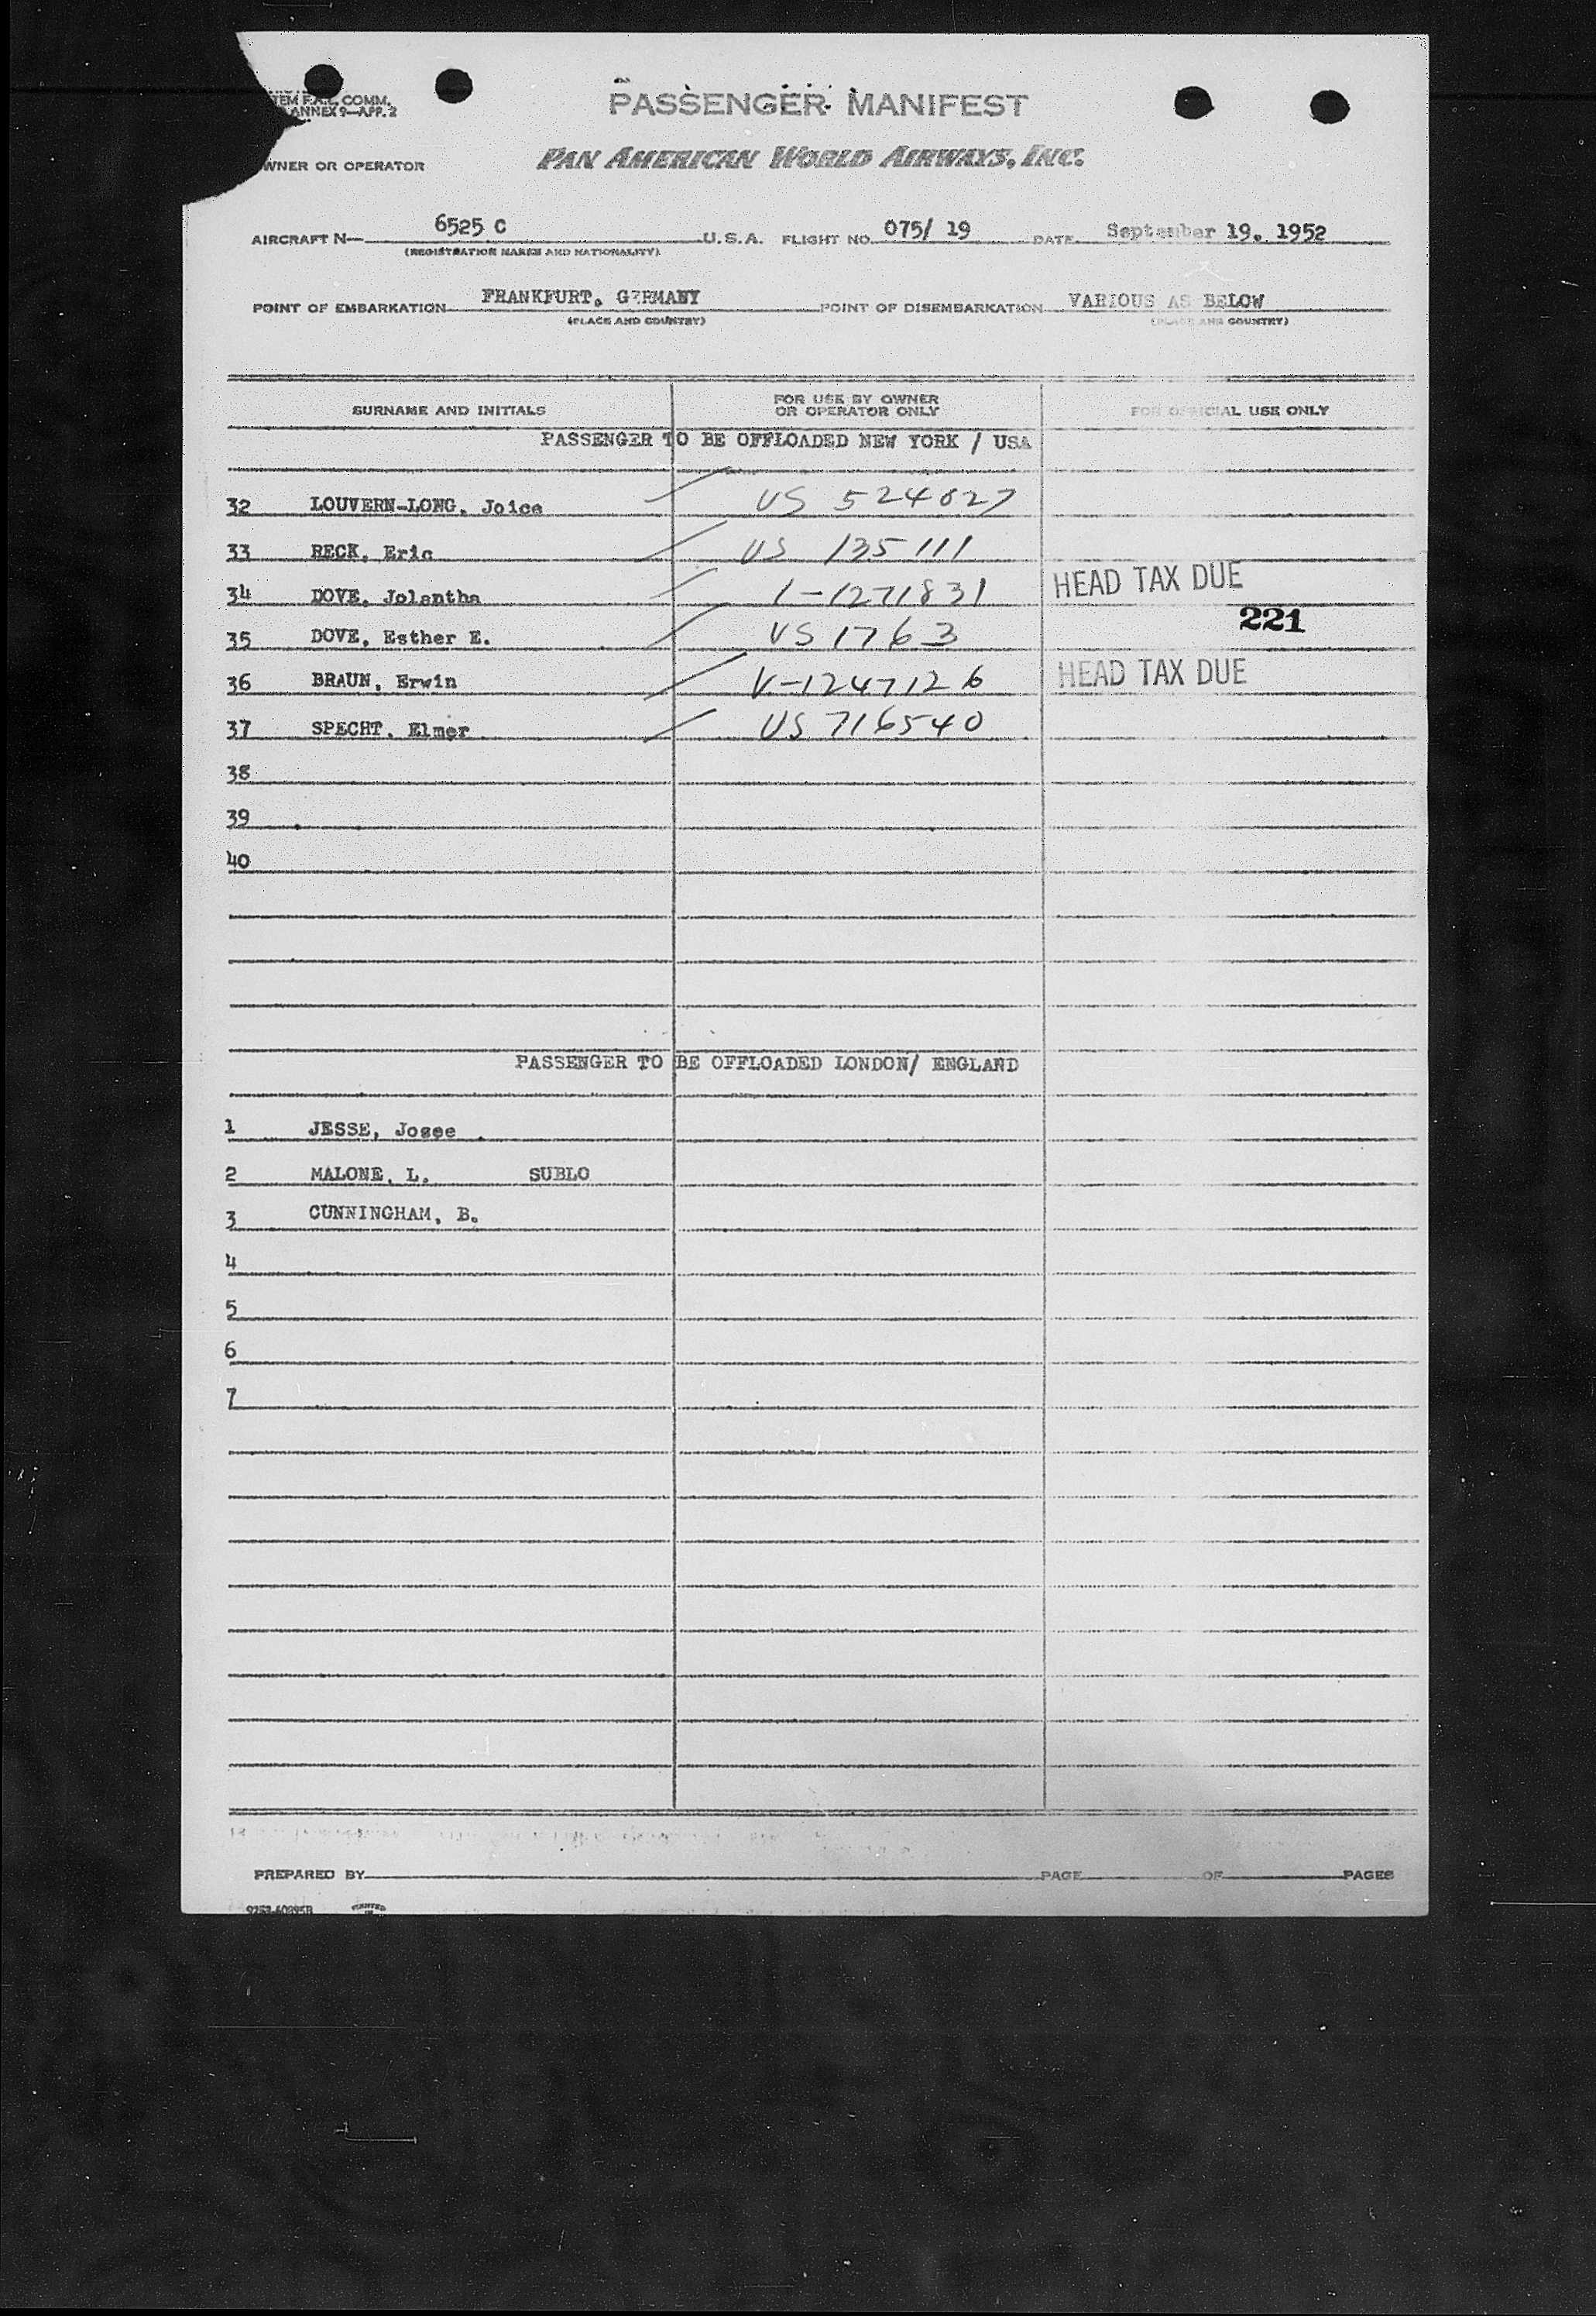 PASSENGER MANIFEST
TEM F.A.L. COMM.
ANNEX 9—APP. 2
OWNER OR OPERATOR PAN AMERICAN WORLD AIRWAYS, INC.
AIRCRAFT N— 6525 C U.S.A. FLIGHT NO. 075/ 19 DATE September 19. 1952
(REGISTRATION MARKS AND NATIONALITY)
POINT OF EMBARKATION FRANKFURT, GERMANY POINT OF DISEMBARKATION VARIOUS AS BELOW
(PLACE AND COUNTRY) (PLACE AND COUNTRY)
SURNAME AND INITIALS FOR USE BY OWNER OR OPERATOR ONLY FOR OFFICIAL USE ONLY
PASSENGER TO BE OFFLOADED NEW YORK / USA
32 LOUVERN-LONG, Joice US 524027
33 RECK, Eric US 135111
34 DOVE, Jolantha 1-1271831 HEAD TAX DUE
221
35 DOVE, Esther E. US 1763
36 BRAUN, Erwin V-1247126 HEAD TAX DUE
37 SPECHT, Elmer US 716540
38
39
40
PASSENGER TO BE OFFLOADED LONDON/ ENGLAND
1 JESSE, Josee
2 MALONE, L. SUBLO
3 CUNNINGHAM, B.
4
5
6
7
PREPARED BY PAGE OF PAGES